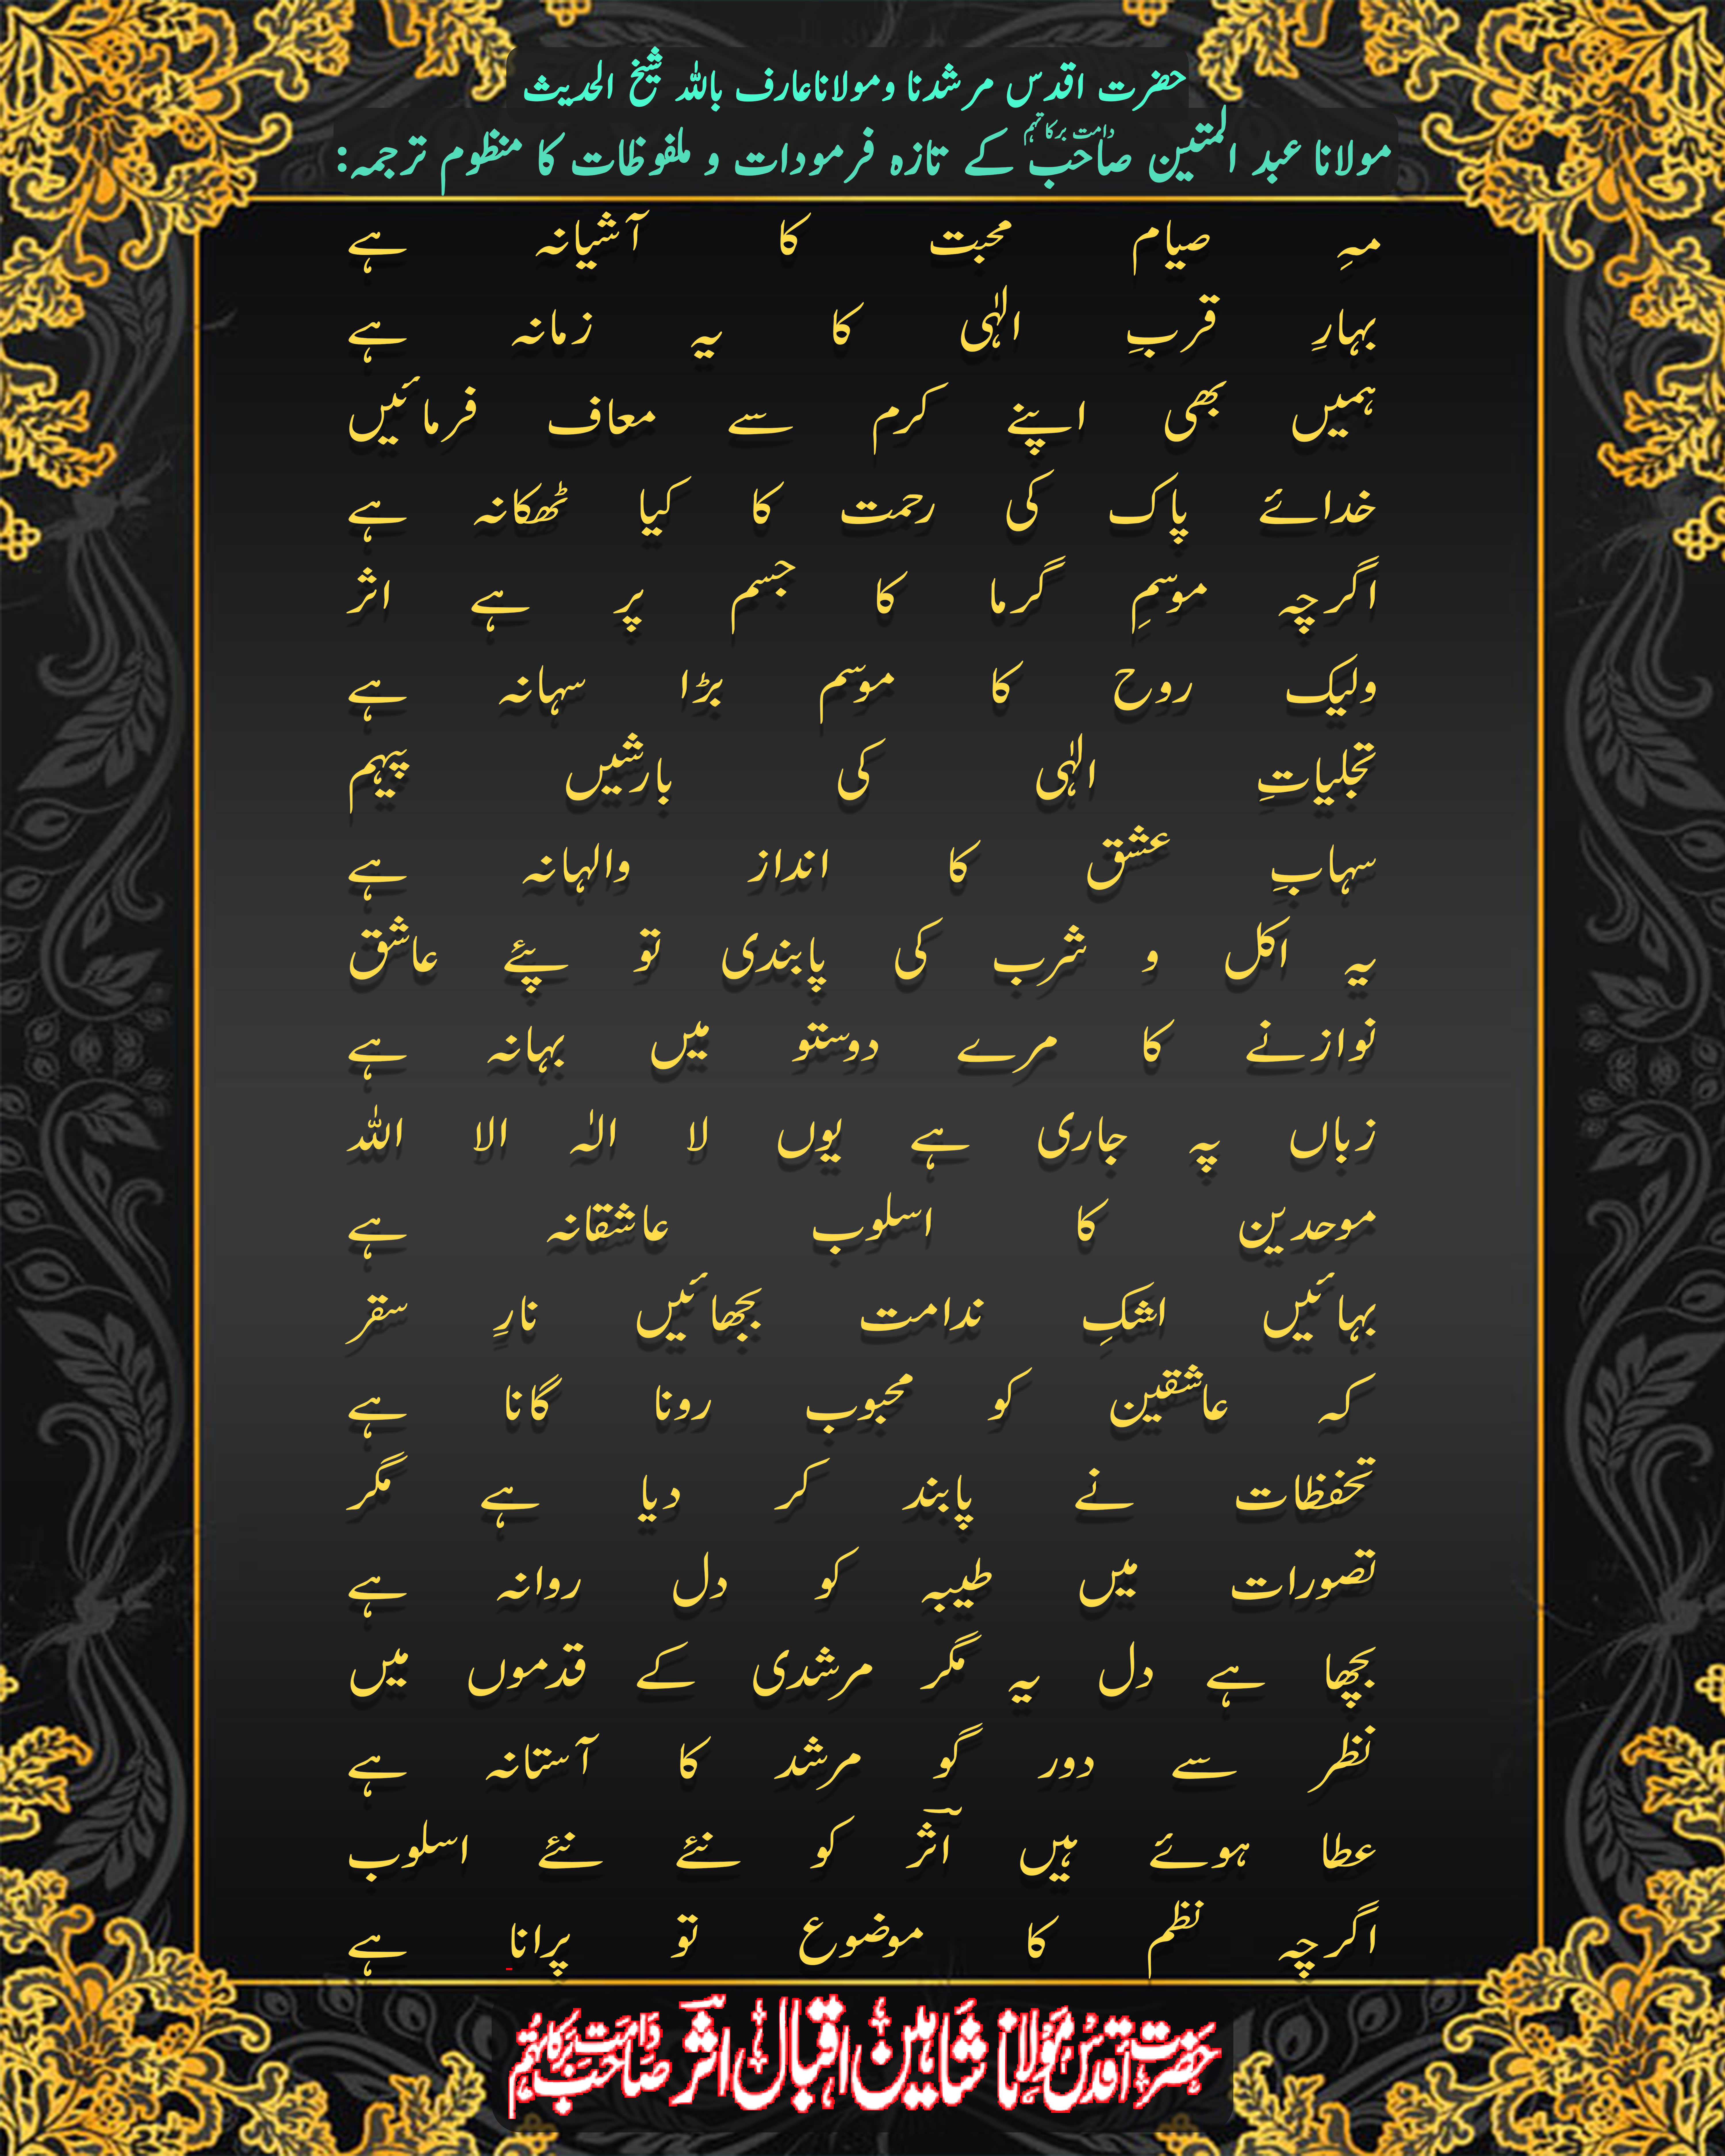 حضرت اقدس مرشدنا ومولاناعارف باللہ شیخ الحدیث
مولانا عبد المتین صاحب دامت برکاتہم کے تازہ فرمودات و ملفوظات کا منظوم ترجمہ:
مہِ صیام محبت کا آشیانہ ہے
بہارِ قربِ الٰہی کا یہ زمانہ ہے
ہمیں بھی اپنے کرم سے معاف فرمائیں
خدائے پاک کی رحمت کا کیا ٹھکانہ ہے
اگرچہ موسمِ گرما کا جسم پر ہے اثر
ولیک روح کا موسم بڑا سہانہ ہے
تجلیاتِ الٰہی کی بارشیں پیہم
سہابِ عشق کا انداز والہانہ ہے
یہ اکل و شرب کی پابندی تو پئے عاشق
نوازنے کا مرے دوستو میں بہانہ ہے
زباں پہ جاری ہے یوں لا الٰہ الا اللہ
موحدین کا اسلوب عاشقانہ ہے
بہائیں اشکِ ندامت بجھائیں نارِ سقر
کہ عاشقین کو محبوب رونا گانا ہے
تحفظات نے پابند کر دیا ہے مگر
تصورات میں طیبہ کو دل روانہ ہے
بچھا ہے دل یہ مگر مرشدی کے قدموں میں
نظر سے دور گو مرشد کا آستانہ ہے
عطا ہوئے ہیں اثرؔ کو نئے نئے اسلوب
اگرچہ نظم کا موضوع تو پرانا ہے
حضرت اقدس مولانا شاہین اقبال اثرؔ صاحب دامت برکاتہم